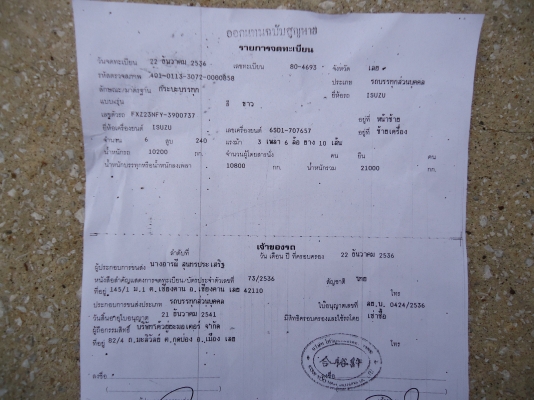 ออกแทนฉบับสูญหาย
รายการจดทะเบียน
วันจดทะเบียน 22 ธันวาคม 2536 เลขทะเบียน 80-4693 จังหวัด เลย
รหัสตรวจสภาพ 403-0113-3072-0000858 ประเภท รถบรรทุกส่วนบุคคล
ลักษณะ/มาตรฐาน กระบะบรรทุก ยี่ห้อรถ ISUZU
แบบ/รุ่น สี ขาว
เลขตัวรถ FXZ23NFY-3900737 อยู่ที่ หน้าซ้าย
ยี่ห้อเครื่องยนต์ ISUZU เลขเครื่องยนต์ 6SD1-707657 อยู่ที่ ซ้ายเครื่อง
จำนวน 6 สูบ 240 แรงม้า 3 เพลา 6 ล้อ ยาง 10 เส้น
น้ำหนักรถ 10200 กก. จำนวนผู้โดยสารนั่ง คน ยืน คน
น้ำหนักบรรทุกหรือน้ำหนักลงเพลา 10800 กก. น้ำหนักรวม 21000 กก.
เจ้าของรถ
ลำดับที่ วัน เดือน ปี ที่ครอบครอง 22 ธันวาคม 2536
ผู้ประกอบการขนส่ง นางอารมี สุนทรประเสริฐ
หนังสือสำคัญแสดงการจดทะเบียน/บัตรประจำตัวเลขที่ 73/2536 สัญชาติ ไทย
ที่อยู่ 145/1 ม.1 ต.เชียงคาน อ.เชียงคาน เลย 42110 โทร
ประกอบการขนส่งประเภท รถบรรทุกส่วนบุคคล ใบอนุญาตเลขที่ ลย.บ. 0424/2536
วันสิ้นอายุใบอนุญาต 21 ธันวาคม 2541 มีสิทธิครอบครองและใช้รถโดย เช่าซื้อ
ผู้ถือกรรมสิทธิ์ บริษัท มอเตอร์ จำกัด
ที่อยู่ 82/4 ถ.มะลิวัลย์ ต.กุดป่อง อ.เมือง เลย โทร
ลงชื่อ ลงชื่อ